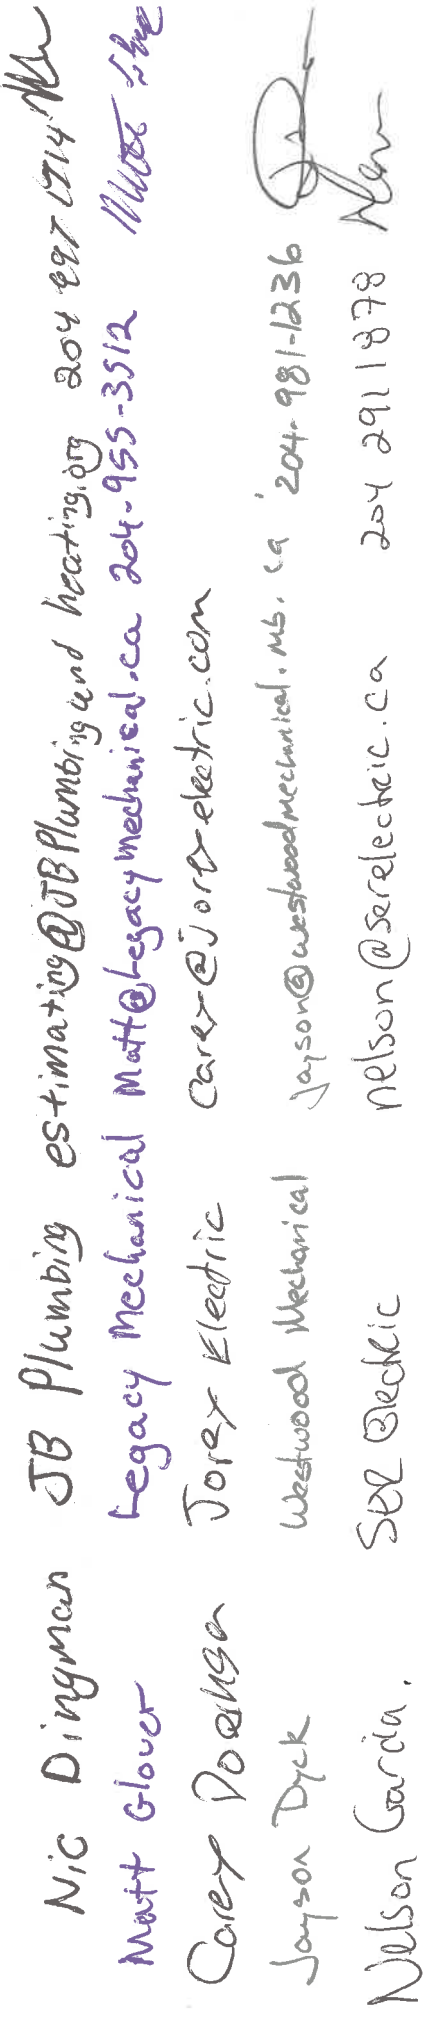 Nic Dingman JB Plumbing estimating@JBPlumbingand heating.org 204
Matt Glover Legacy Mechanical Matt@Legacymechanical.ca 204-955-3512
Carey Doerksen Jorey Electric Carey@joreyelectric.com
Jayson Dyck Westwood Mechanical Jayson@westwoodmechanical.mb.ca 204-981-1236
Nelson Garcia. SER Electric nelson@serelectric.ca 204 291 1878